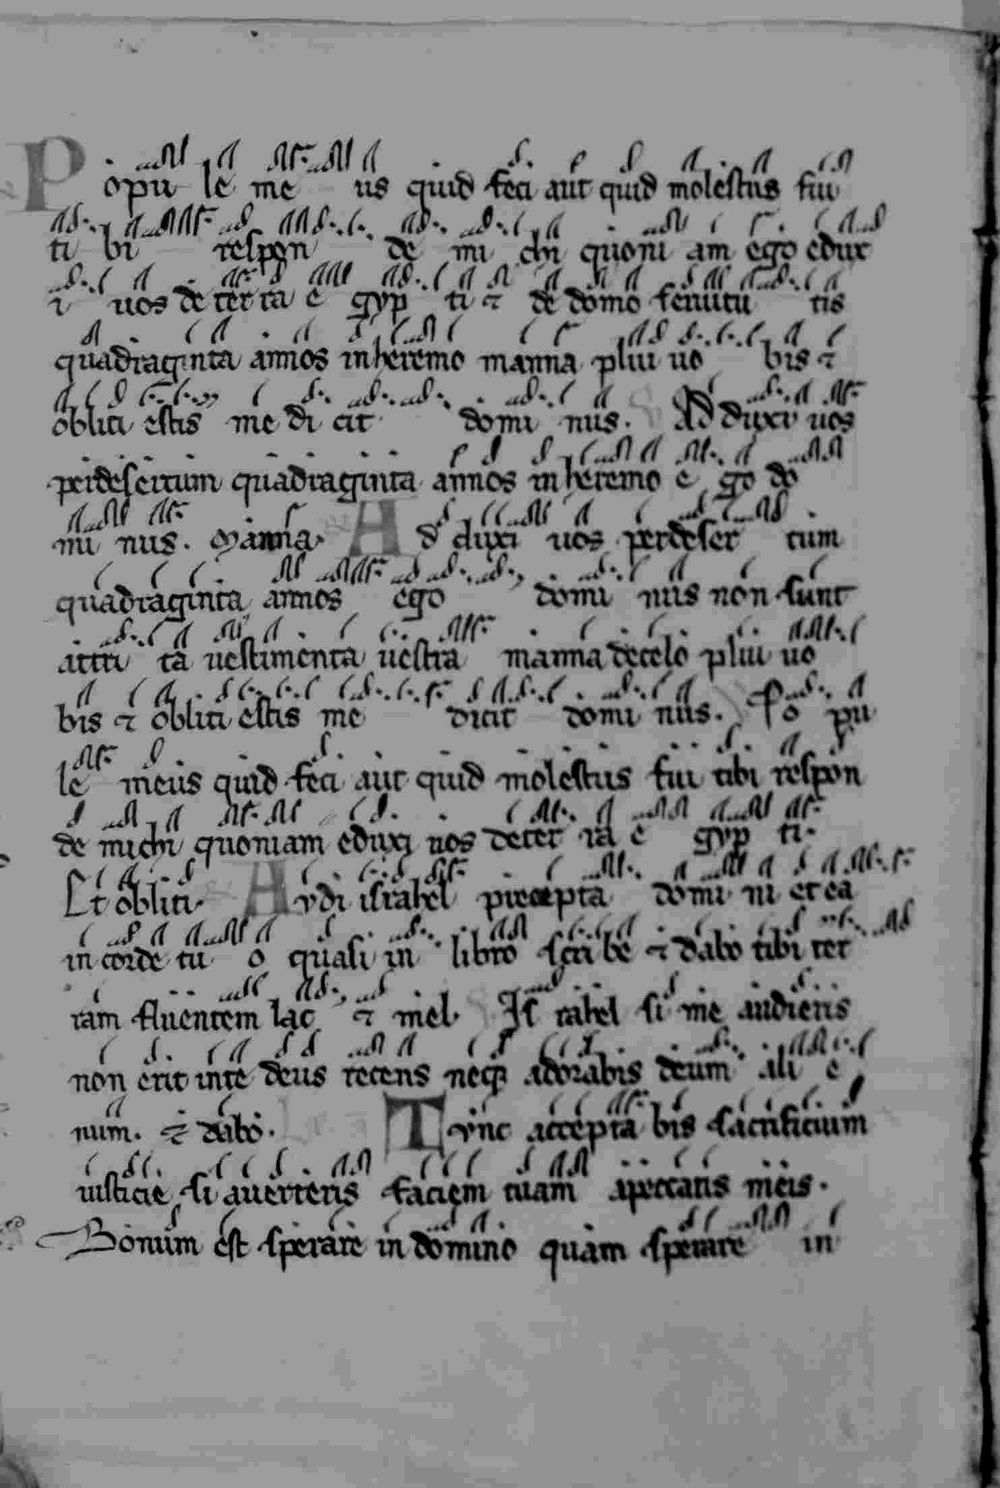 Popu le me us quid feci aut quid molestus fui
ti bi respon de mi chi quoni am ego edux
i uos de ter ra e gyp ti & de domo seruitu tis
quadraginta annos in heremo manna plui uo bis &
obliti estis me di cit domi nus. Ad duxi uos
per desertum quadraginta annos in heremo e go do
mi nus. Manna. A d duxi uos per deser tum
quadraginta annos ego domi nus non sunt
attri ta uestimenta uestra manna de celo plui uo
bis & obliti estis me dicit domi nus. Po pu
le meus quid feci aut quid molestus fui tibi respon
de michi quoniam eduxi uos de ter ra e gyp ti.
Et obliti. Audi israhel precepta domi ni et ea
in corde tu o quasi in libro scri be & dabo tibi ter
ram fluentem lac & mel. Is rahel si me audieris
non erit in te deus recens neq; adorabis deum ali e
num. & dabo. Tunc accepta bis sacrificium
iusticie si auerteris faciem tuam a peccatis meis.
Bonum est sperare in domino quam sperare in